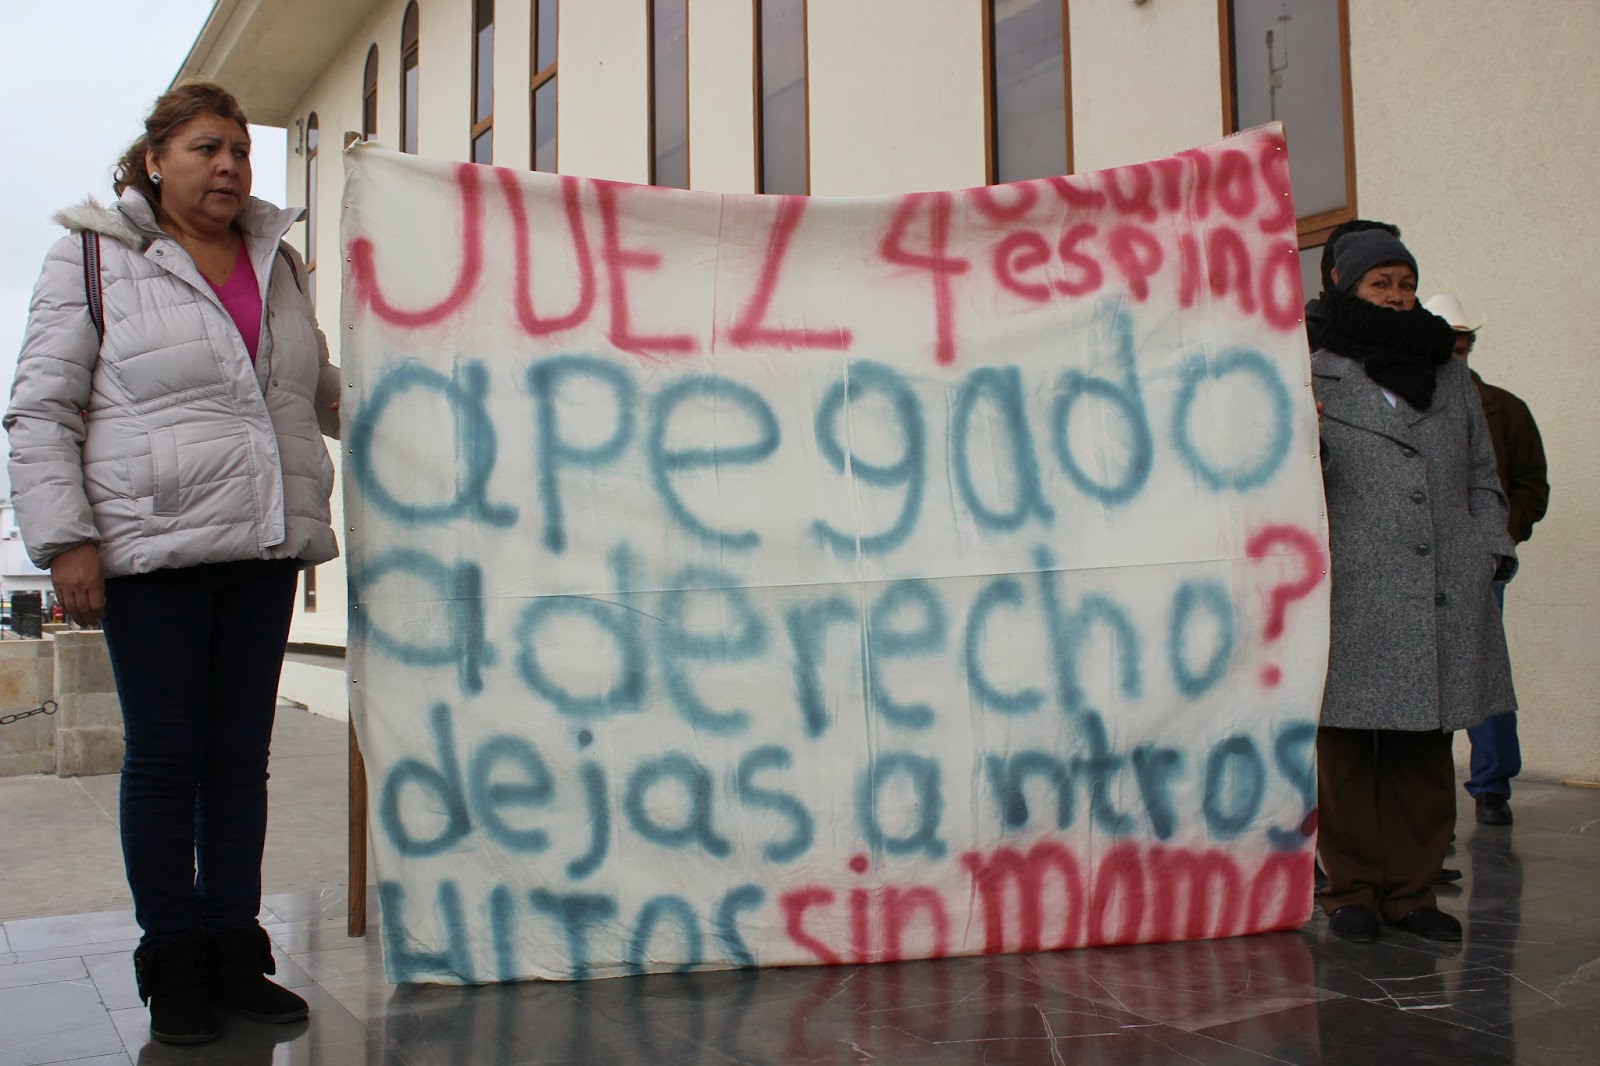 JUEZ 4 Ocarlos
espino
apegado
a derecho?
dejas a ntros
HIJOS sin mama